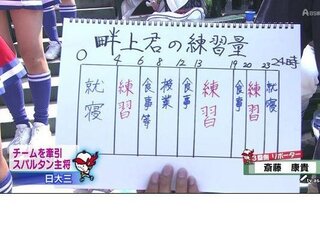 畔上君の練習量
0 4 6 8 12 13 19 20 23 24時
就寝
練習
食事等
授業
食事
練習
食事
練習
就寝
チームを牽引
スパルタン主将
日大三
3塁側 リポーター
斎藤 康貴